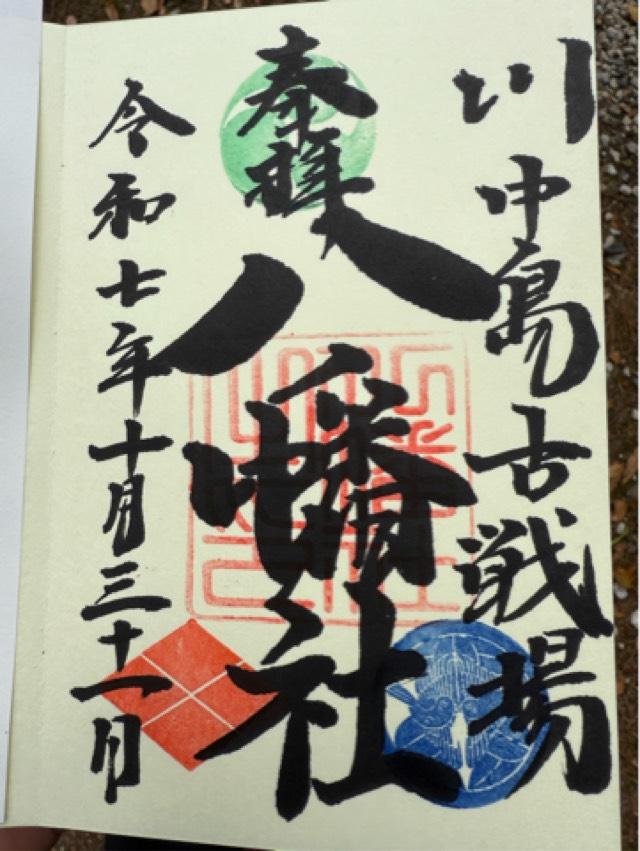 川中島古戦場
奉拝
八幡社
令和七年十月三十一日